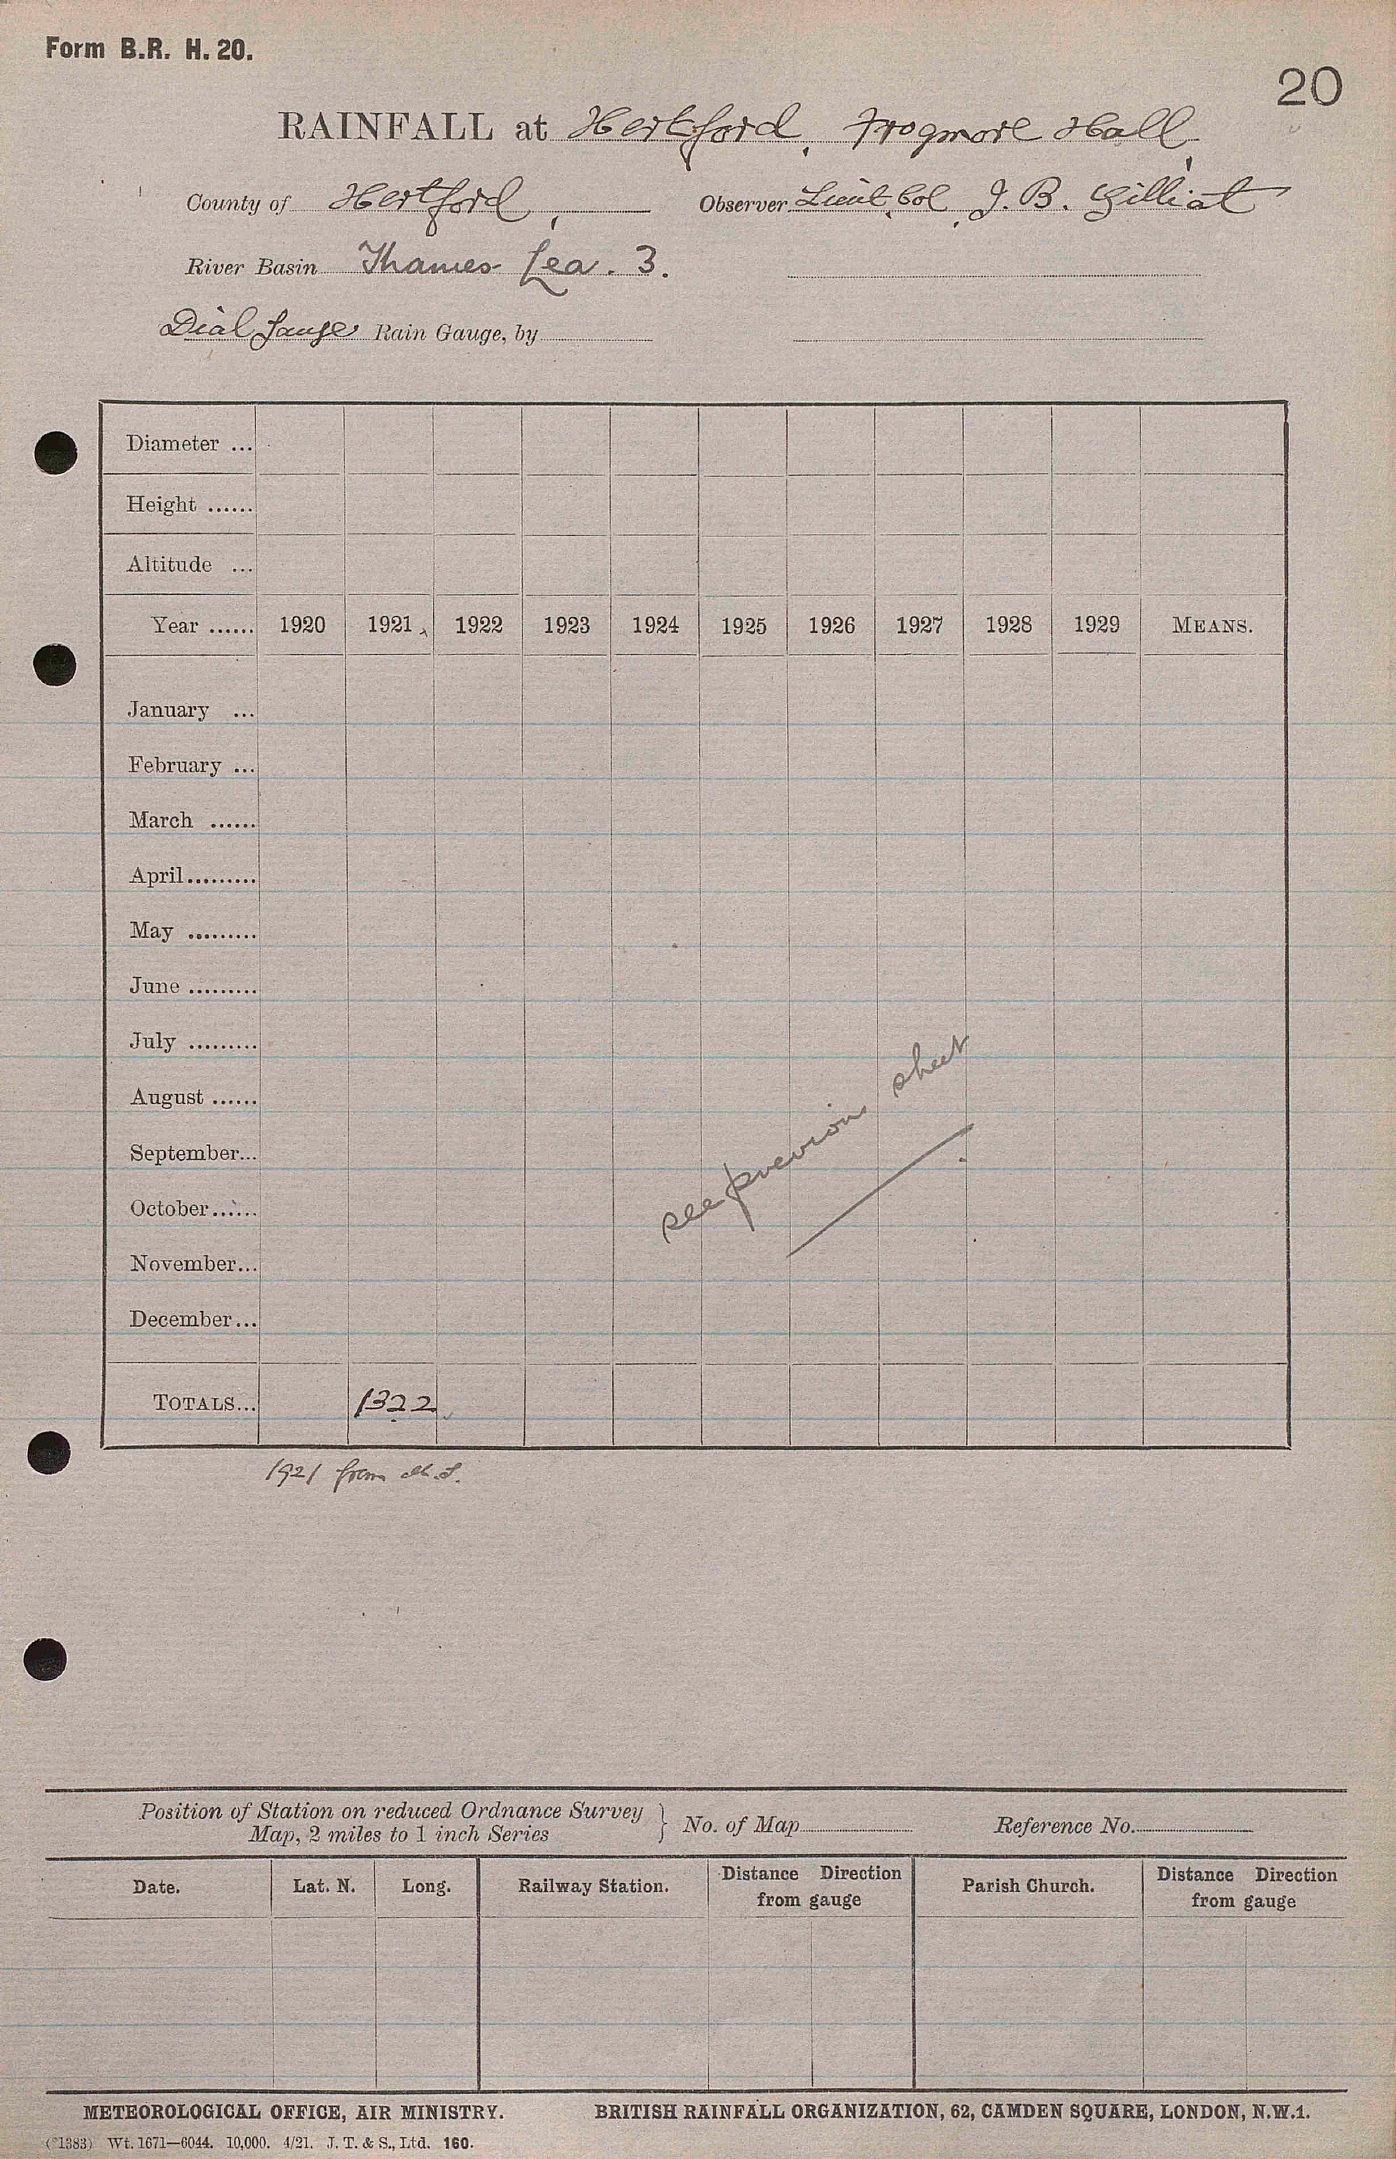 Form B.R. H. 20.
20
RAINFALL at Hertford, Frogmore Hall,
County of Hertford, Observer Lieut. Col. J. B. Gilliat
River Basin Thames Lea. 3.
Dial Gauge Rain Gauge, by
Diameter ...
Height ......
Altitude ...
Year ...... 1920 1921 1922 1923 1924 1925 1926 1927 1928 1929 MEANS.
January ...
February ...
March ......
April.........
May .........
June .........
July .........
August ......
September...
October......
November...
December...
see previous sheet
TOTALS... 1322
1921 from
Position of Station on reduced Ordnance Survey
Map, 2 miles to 1 inch Series } No. of Map Reference No.
Date. Lat. N. Long. Railway Station. Distance Direction from gauge Parish Church. Distance Direction from gauge
METEOROLOGICAL OFFICE, AIR MINISTRY. BRITISH RAINFALL ORGANIZATION, 62, CAMDEN SQUARE, LONDON, N.W.1.
(*1383) Wt. 1671—6044. 10,000. 4/21. J. T. & S., Ltd. 160.